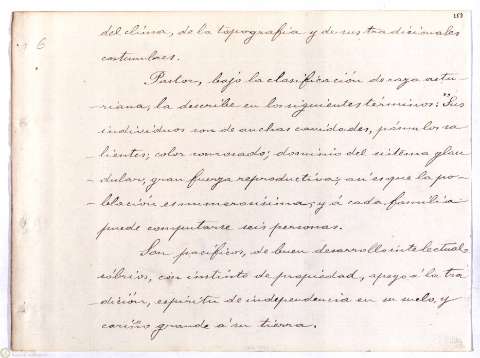 153
6
del clima, de la topografia y de sus tradicionales
costumbres.
Pastor, bajo la clasificación de raza astu-
-riana, la describe en los siguientes términos: "Sus
individuos son de anchas cavidades, pómulos sa-
-lientes; color sonrosado; dominio del sistema glan-
-dular, gran fuerza reproductiva; así es que la po-
-blación es numerosísima; y á cada familia
puede computarse seis personas.
Son pacíficos, de buen desarrollo intelectual
sóbrios, con instinto de propiedad, apego á la tra-
-dición, espíritu de independencia en su suelo, y
cariño grande á su tierra.